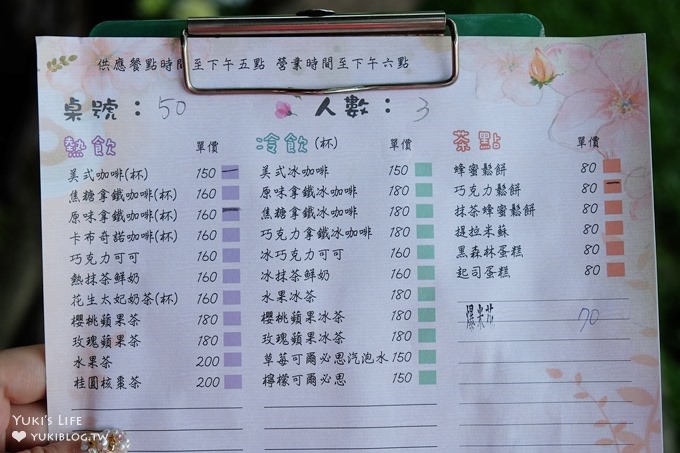 供應餐點時間至下午五點 營業時間至下午六點
桌號：50 人數：3
熱飲 單價
美式咖啡(杯) 150
焦糖拿鐵咖啡(杯) 160
原味拿鐵咖啡(杯) 160
卡布奇諾咖啡(杯) 160
巧克力可可 160
熱抹茶鮮奶 160
花生太妃奶茶(杯) 160
櫻桃蘋果茶 180
玫瑰蘋果茶 180
水果茶 200
桂圓核棗茶 200
冷飲(杯) 單價
美式冰咖啡 150
原味拿鐵冰咖啡 180
焦糖拿鐵冰咖啡 180
巧克力拿鐵冰咖啡 180
冰巧克力可可 160
冰抹茶鮮奶 160
水果冰茶 180
櫻桃蘋果冰茶 180
玫瑰蘋果冰茶 180
草莓可爾必思汽泡水 150
檸檬可爾必思 150
茶點 單價
蜂蜜鬆餅 80
巧克力鬆餅 80
抹茶蜂蜜鬆餅 80
提拉米蘇 80
黑森林蛋糕 80
起司蛋糕 80
爆米花 70
YUKI'S LIFE
YUKIBLOG.TW